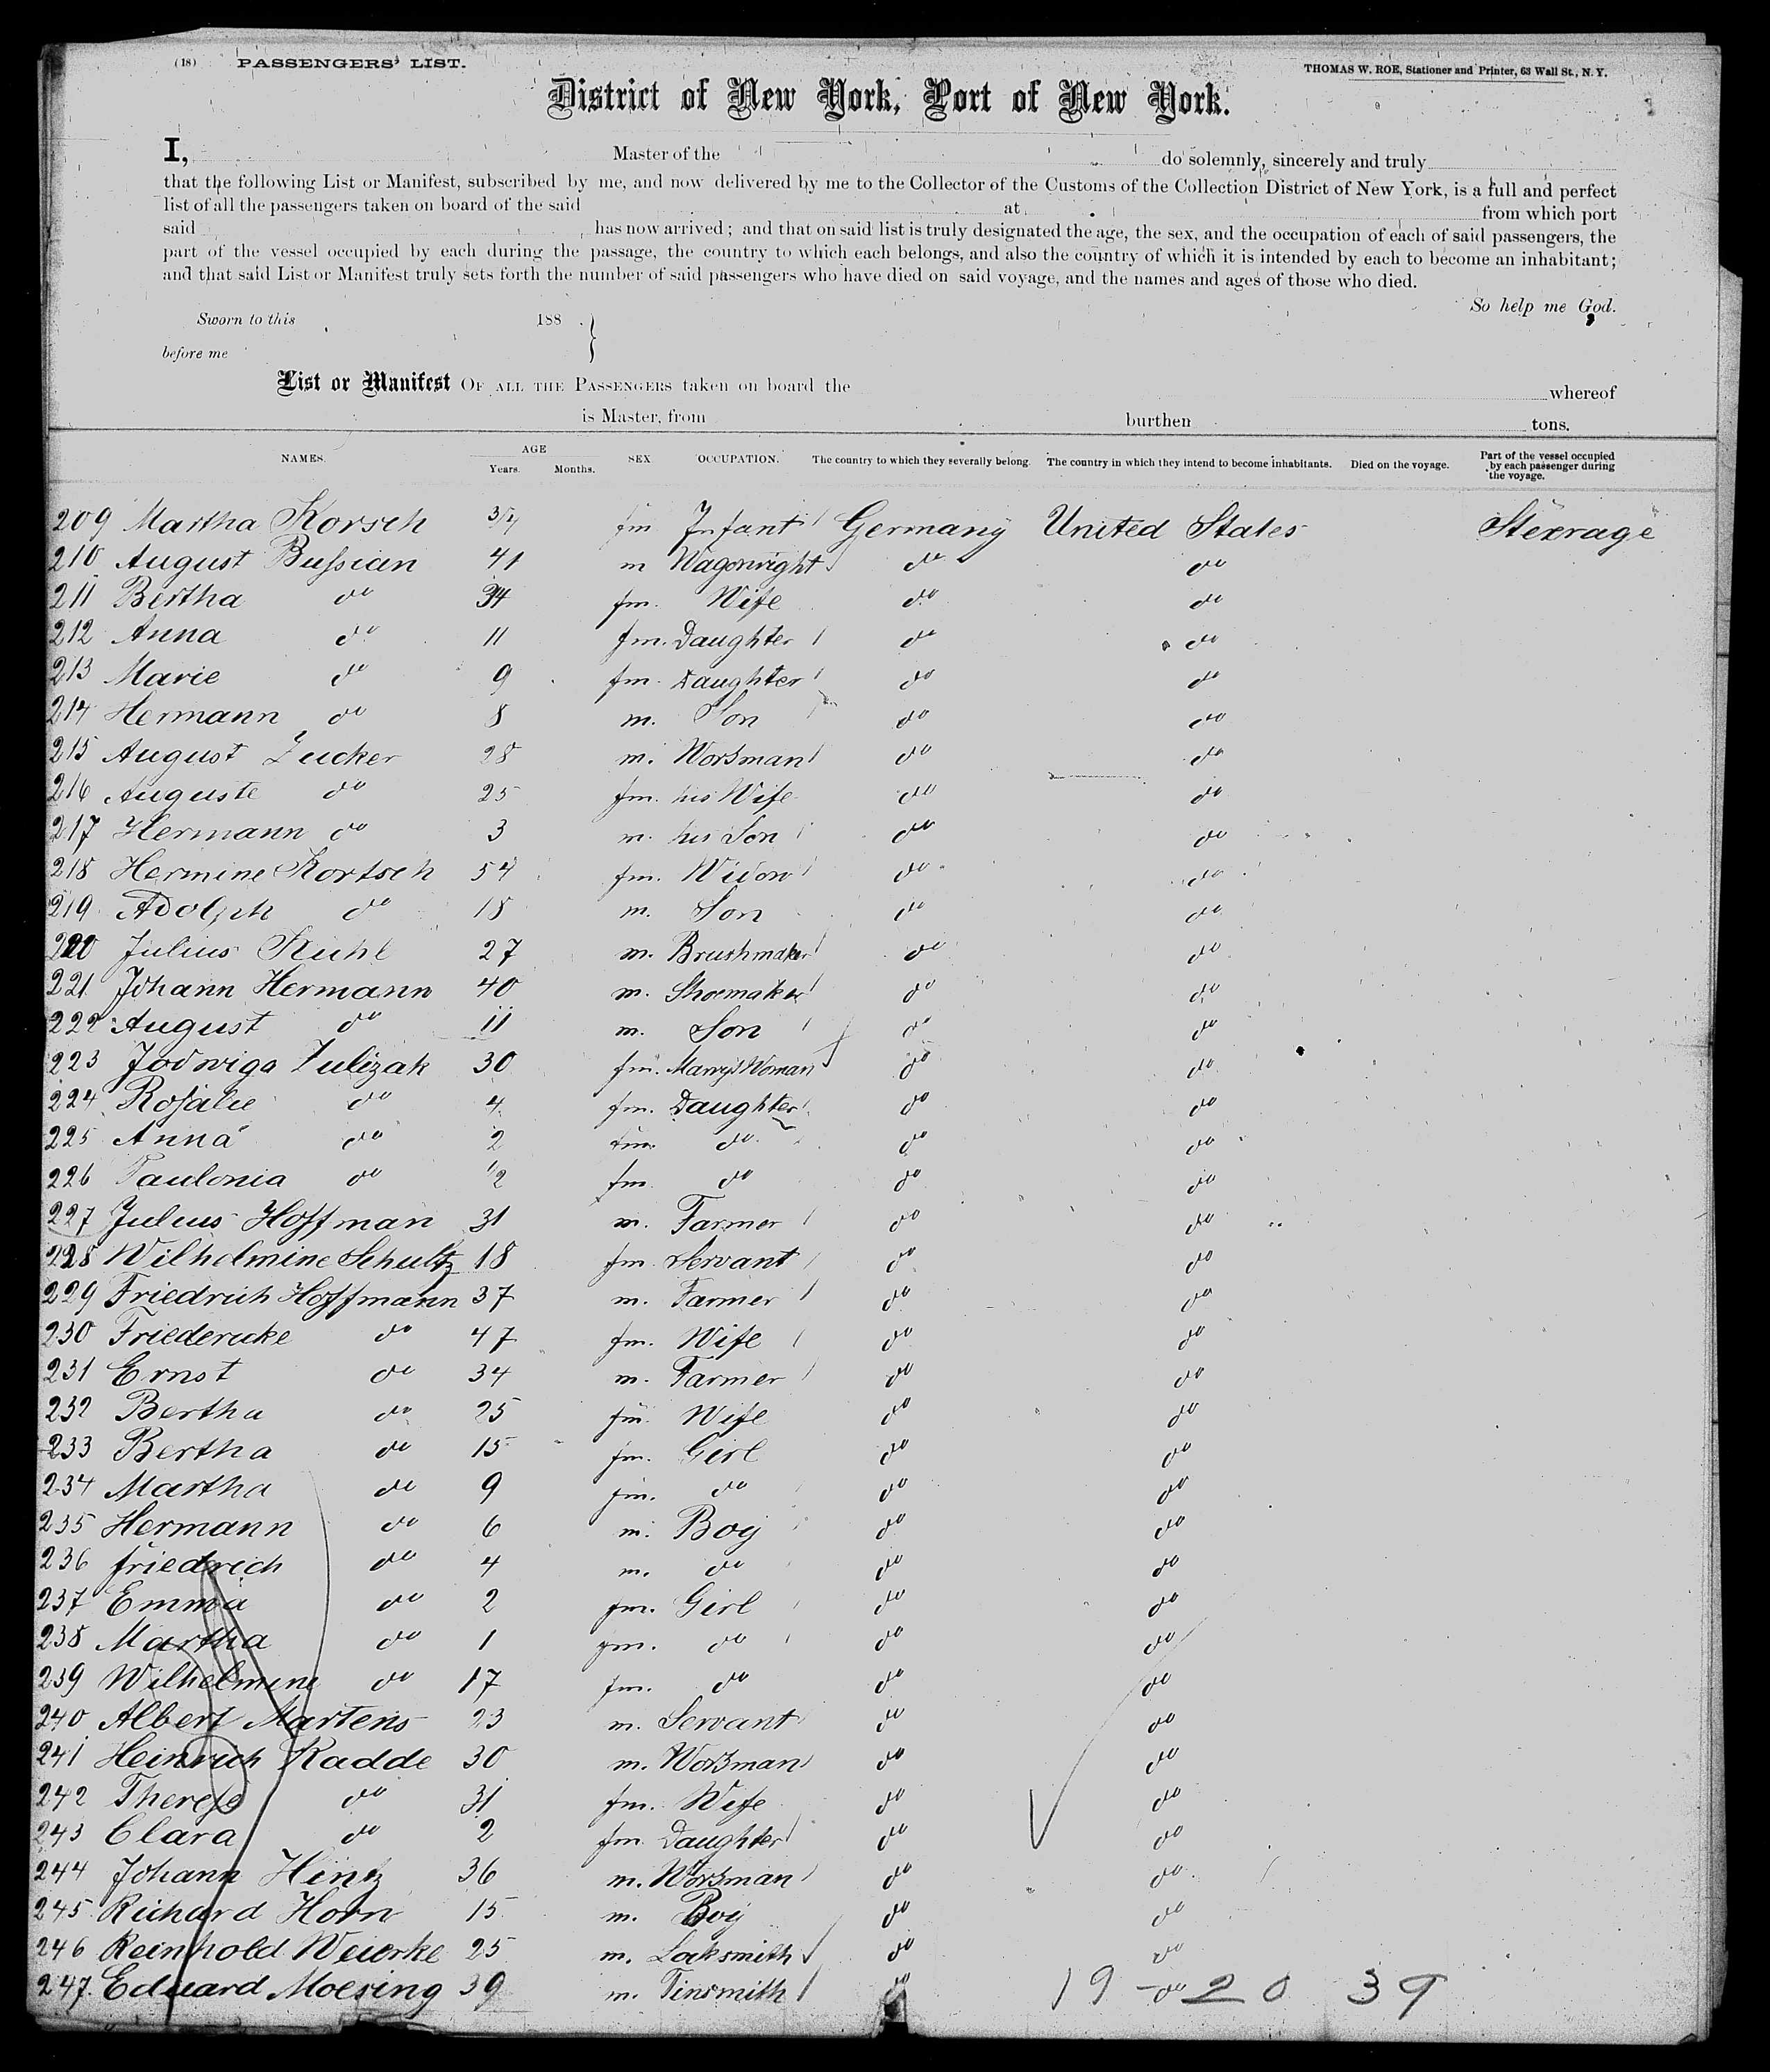 (18) PASSENGERS' LIST.
THOMAS W. ROE, Stationer and Printer, 63 Wall St., N. Y.
District of New York, Port of New York.
I, Master of the do solemnly, sincerely and truly
that the following List or Manifest, subscribed by me, and now delivered by me to the Collector of the Customs of the Collection District of New York, is a full and perfect
list of all the passengers taken on board of the said at from which port
said has now arrived; and that on said list is truly designated the age, the sex, and the occupation of each of said passengers, the
part of the vessel occupied by each during the passage, the country to which each belongs, and also the country of which it is intended by each to become an inhabitant;
and that said List or Manifest truly sets forth the number of said passengers who have died on said voyage, and the names and ages of those who died.
So help me God.
Sworn to this 188
before me
List or Manifest OF ALL THE PASSENGERS taken on board the whereof
is Master, from burthen tons.
NAMES. AGE Years. Months. SEX. OCCUPATION. The country to which they severally belong. The country in which they intend to become inhabitants. Died on the voyage. Part of the vessel occupied by each passenger during the voyage.
209 Martha Korsch fm Infant Germany United States Steerage
210 August Bußian 41 m Wagonwright do do
211 Bertha do 34 fm. Wife do do
212 Anna do 11 fm. Daughter do do
213 Marie do 9 fm. Daughter do do
214 Hermann do 8 m. Son do do
215 August Zucker 28 m. Worsman do do
216 Auguste do 25 fm. his Wife do do
217 Hermann do 3 m. his Son do do
218 Hermine Kortsch 54 fm. Widow do do
219 Adolph do 18 m. Son do do
220 Julius Kuhl 27 m. Brushmaker do do
221 Johann Hermann 40 m. Shoemaker do do
222 August do 11 m. Son do do
223 Jadwiga Zulizak 30 fm. Marryd Woman do do
224 Rosalie do 4 fm. Daughter do do
225 Anna do 2 fm. do do do
226 Paulonia do 1/2 fm do do do
227 Julius Hoffman 31 m. Farmer do do
228 Wilhelmine Schultz 18 fm Servant do do
229 Friedrich Hoffmann 37 m. Farmer do do
230 Friedericke do 47 fm. Wife do do
231 Ernst do 34 m. Farmer do do
232 Bertha do 25 fm. Wife do do
233 Bertha do 15 fm. Girl do do
234 Martha do 9 fm. do do do
235 Hermann do 6 m. Boy do do
236 friedrich do 4 m. do do do
237 Emma do 2 fm. Girl do do
238 Martha do 1 fm. do do do
239 Wilhelmine do 17 fm. do do do
240 Albert Martens 23 m. Servant do do
241 Heinrich Radde 30 m. Worsman do do
242 Therese do 31 fm. Wife do do
243 Clara do 2 fm Daughter do do
244 Johann Hintz 36 m. Worsman do do
245 Richard Horn 15 m. Boy do do
246 Reinhold Weierke 25 m. Locksmith do do
247. Eduard Moesing 39 m. Tinsmith do do
19 - 20 39